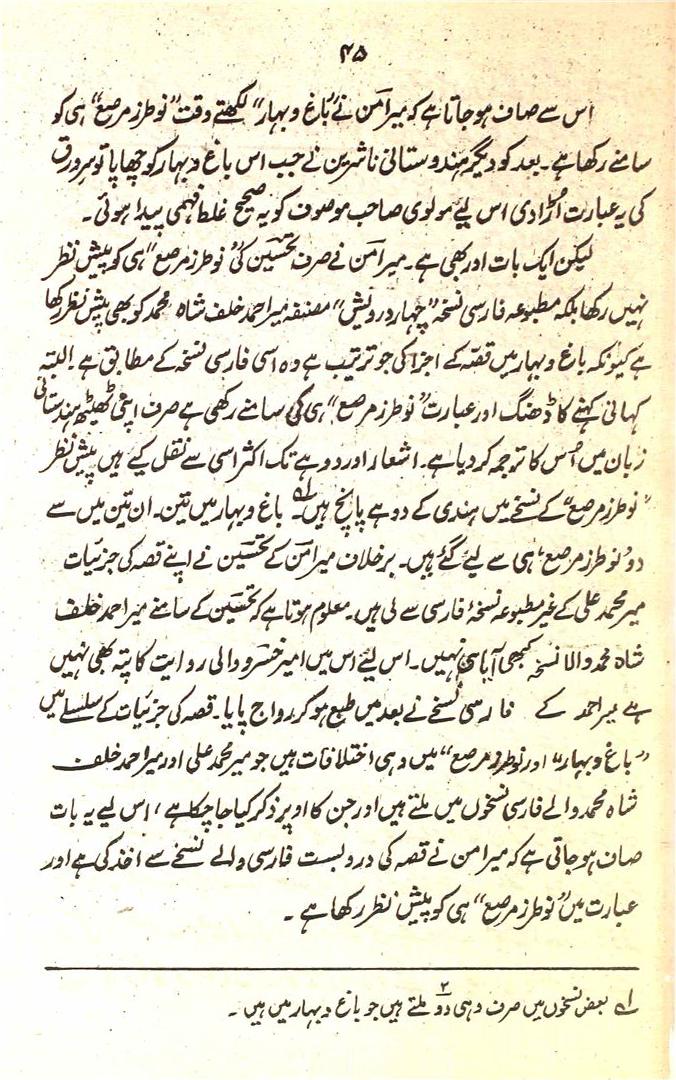 ۴۵
اس سے صاف ہو جاتا ہے کہ میر امن نے "باغ و بہار" لکھتے وقت "نو طرز مرصع" ہی کو
سامنے رکھا ہے۔ بعد کو دیگر ہندوستانی ناشرین نے جب اس باغ و بہار کو چھاپا تو سرورق
کی یہ عبارت اڑا دی اس لیے مولوی صاحب موصوف کو یہ صحیح غلط فہمی پیدا ہوئی۔
لیکن ایک بات اور بھی ہے۔ میر امن نے صرف تحسین کی "نو طرز مرصع" ہی کو پیش نظر
نہیں رکھا بلکہ مطبوعہ فارسی نسخہ "چہار درویش" مصنفہ میر احمد خلف شاہ محمد کو بھی پیش نظر رکھا
ہے کیونکہ باغ و بہار میں قصّہ کے اجزا کی جو ترتیب ہے وہ اسی فارسی نسخہ کے مطابق ہے البتہ
کہانی کہنے کا ڈھنگ اور عبارت "نو طرز مرصع" ہی کی سامنے رکھی ہے صرف اپنی ٹھیٹھ ہندستانی
زبان میں اُس کا ترجمہ کر دیا ہے۔ اشعار اور دوہے تک اکثر اسی سے نقل کیے ہیں پیش نظر
"نو طرز مرصع" کے نسخے میں ہندی کے دوہے پانچ ہیں۔ لہ باغ و بہار میں تین۔ ان تین میں سے
دو "نو طرز مرصع" ہی سے لیے گئے ہیں۔ برخلاف میر امن کے تحسین نے اپنے قصہ کی جزئیات
میر محمد علی کے غیر مطبوعہ نسخۂ فارسی سے لی ہیں۔ معلوم ہوتا ہے کہ تحسین کے سامنے میر احمد خلف
شاہ محمد والا نسخہ کبھی آیا ہی نہیں۔ اس لیے اس میں امیر خسرو والی روایت کا پتہ بھی نہیں
ہے میر احمد کے فارسی نسخے نے بعد میں طبع ہو کر رواج پایا۔ قصہ کی جزئیات کے سلسلے میں
"باغ و بہار" اور "نو طرز مرصع" میں وہی اختلافات ہیں جو میر محمد علی اور میر احمد خلف
شاہ محمد والے فارسی نسخوں میں ملتے ہیں اور جن کا اوپر ذکر کیا جا چکا ہے، اس لیے یہ بات
صاف ہو جاتی ہے کہ میر امن نے قصہ کی در و بست فارسی والے نسخے سے اخذ کی ہے اور
عبارت میں "نو طرز مرصع" ہی کو پیش نظر رکھا ہے۔
لہ بعض نسخوں میں صرف وہی دو ۲ ملتے ہیں جو باغ و بہار میں ہیں۔